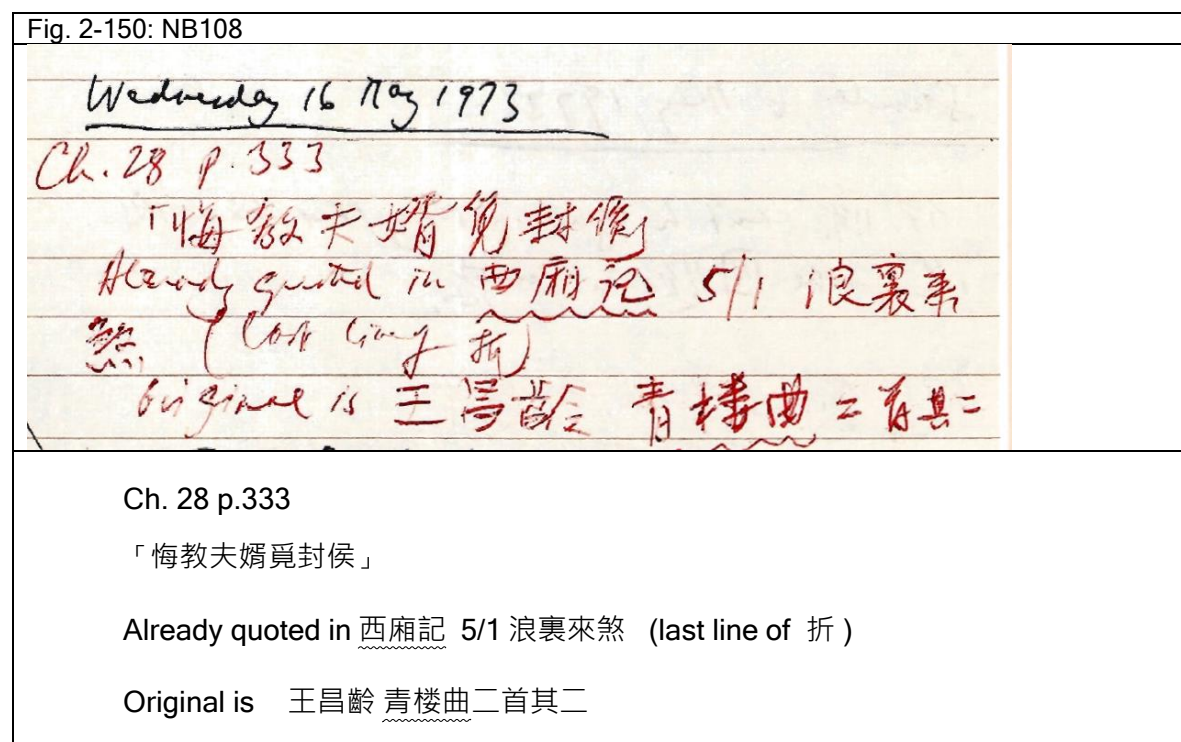 Fig. 2-150: NB108
Wednesday 16 May 1973
Ch. 28 p. 333
「悔教夫婿覓封侯」
Already quoted in 西廂記 5/1 浪裏来
煞 (last line of 折)
Original is 王昌齡 青楼曲二首其二
Ch. 28 p.333
「悔教夫婿覓封侯」
Already quoted in 西廂記 5/1 浪裏來煞 (last line of 折 )
Original is 王昌齡 青楼曲二首其二